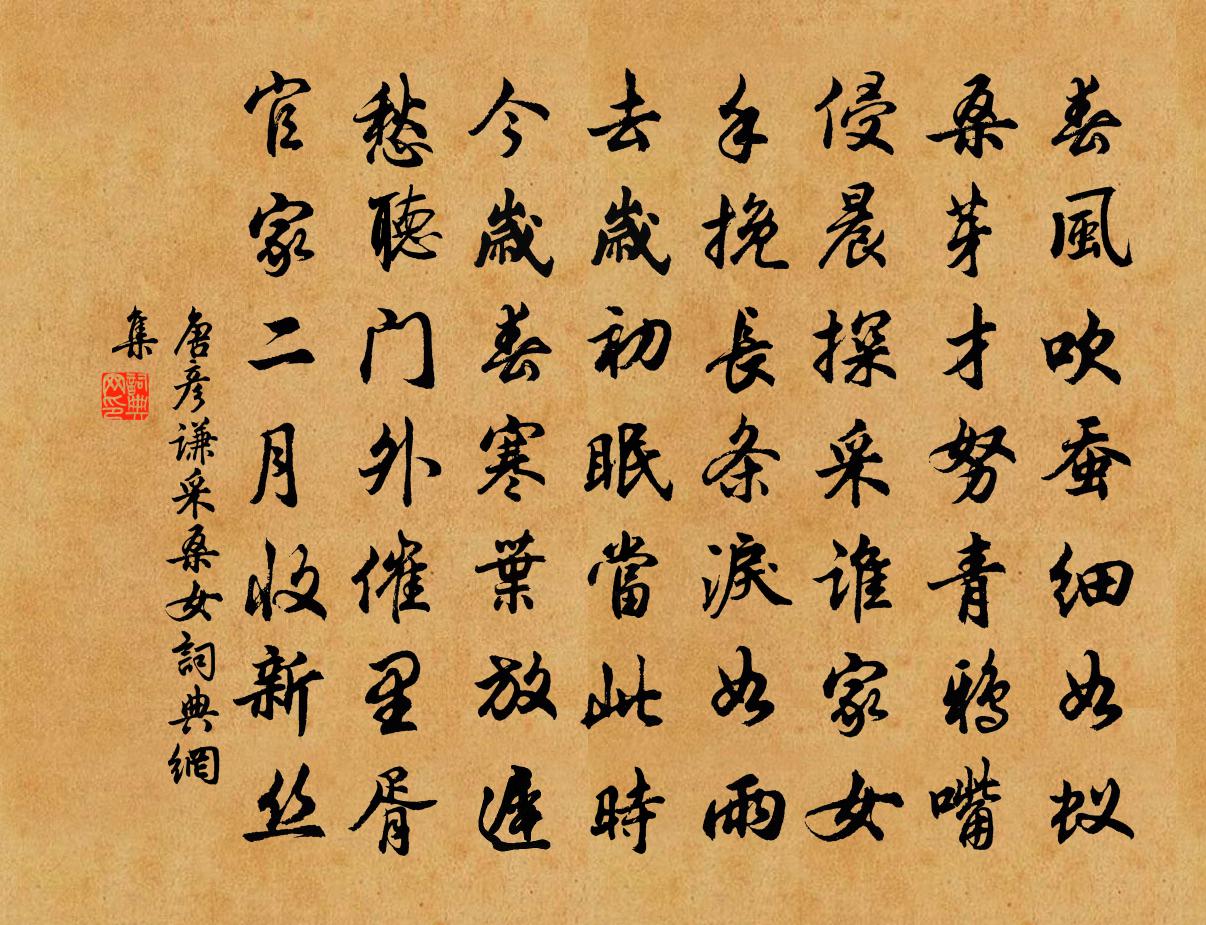 春風吹蚕細如蚁
桑芽才努青鴉嘴
侵晨探采谁家女
手挽長条淚如雨
去歲初眠當此時
今歲春寒葉放遲
愁聽门外催里胥
官家二月收新丝
唐彦谦采桑女詞典網
集
詞典网印